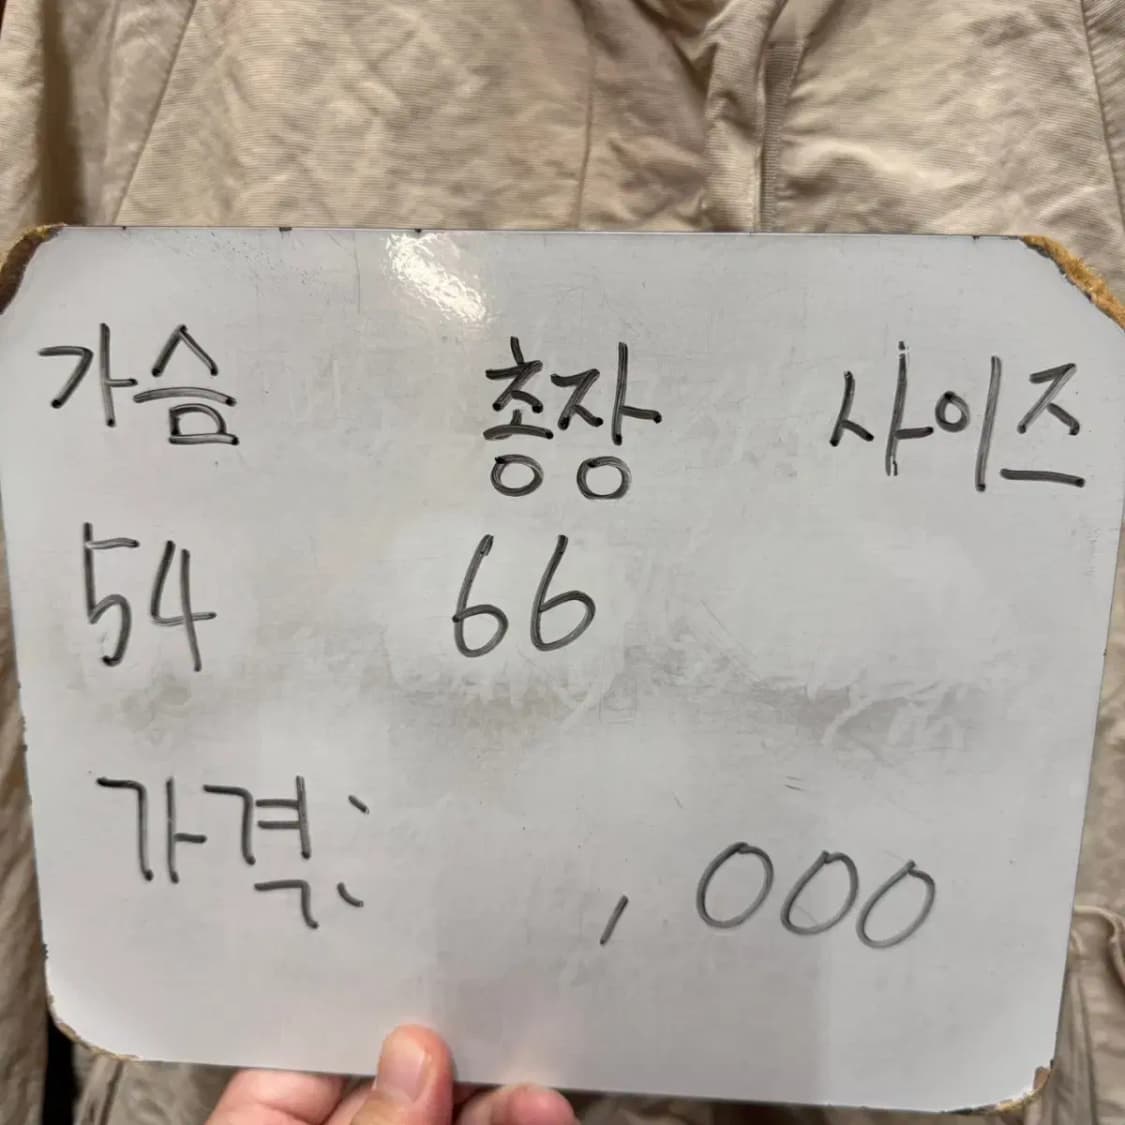 가슴 총장 사이즈
54 66
가격: ,000